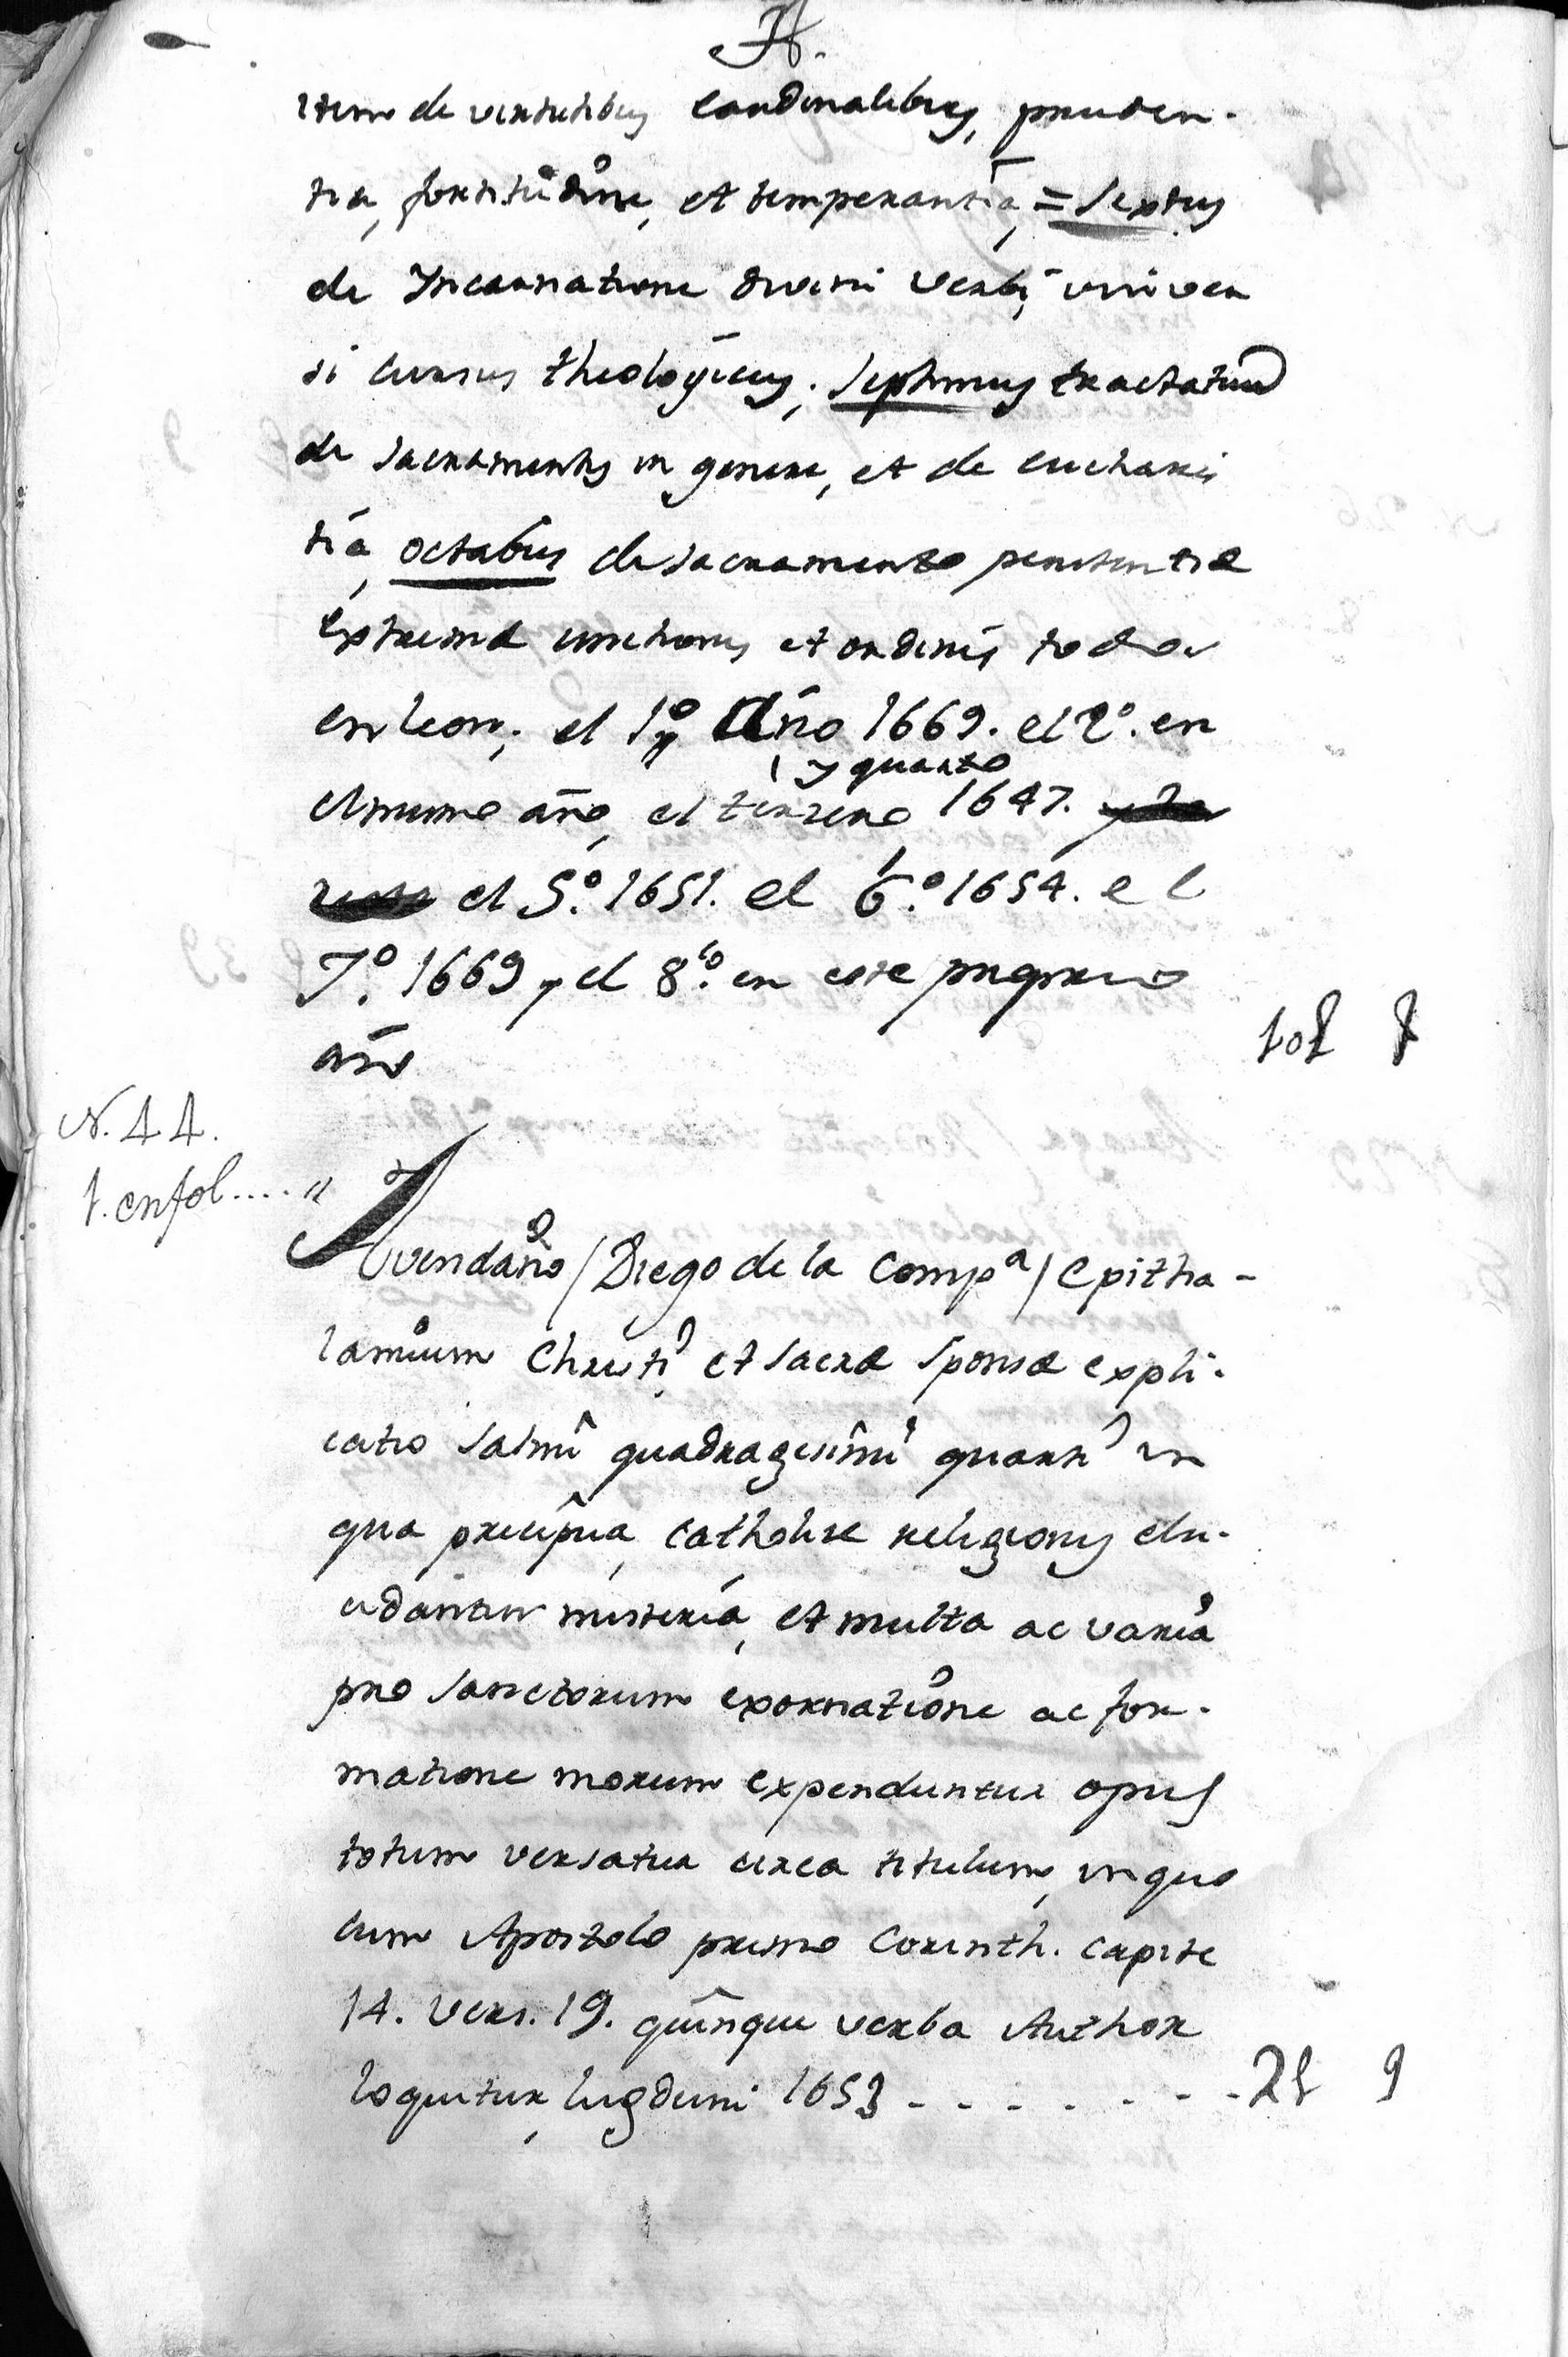 A.
item de virtutibus Cardinalibus, pruden-
tia, fortitudine, et temperantia, = Sextus
de Yncarnatione divini verbi, univer
si cursus theologicus, Septimus tractatum
de sacramentis in genere, et de eucharis
tia, octabus de sacramento penitentiæ
extremæ unctionis et ordinis todos
en leon; el 1º Año 1669. el 2º. en
el mismo año, el terzero y quarto 1647.
el 5º. 1651. el 6º. 1654. el
7º. 1669 y el 8º. en este proprio
año
N. 44.
1. en fol....
Avendaño / Diego de la Compª / Epitha-
lamium Christi, et sacræ sponsæ expli-
catio salmi quadragesimi quarti in
qua precipua, catholicæ religionis elu-
cidantur misteria, et multa ac varia
pro sanctorum exornatione ac for-
matione morum expenduntur opus
totum versatur circa titulum, in quo
cum Apostolo primo Corinth. capite
14. vers. 19. quinque verba Author
loquitur, lugduni 1653 - - - - - - -